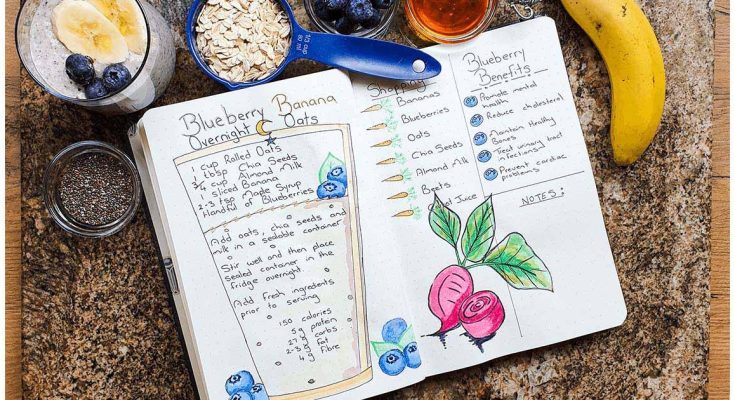 Blueberry Banana
Overnight Oats
1 cup Rolled Oats
1 tbsp Chia Seeds
3/4 cup Almond Milk
1 sliced Banana
2-3 tsp Maple Syrup
Handful of Blueberries
Add oats, chia seeds and
milk in a sealable container
Stir well and then place
sealed container in the
fridge overnight.
Add Fresh ingredients
prior to serving
150 calories
5g protein
27g carbs
2-3g fat
4g Fibre
Shopping
Bananas
Blueberries
Oats
Chia Seeds
Almond Milk
Beets
Juice
Blueberry
Benefits
Promote mental
health
Reduce cholesterol
Maintain Healthy
Bones
Treat urinary tract
infections
Prevent cardiac
problems
NOTES: